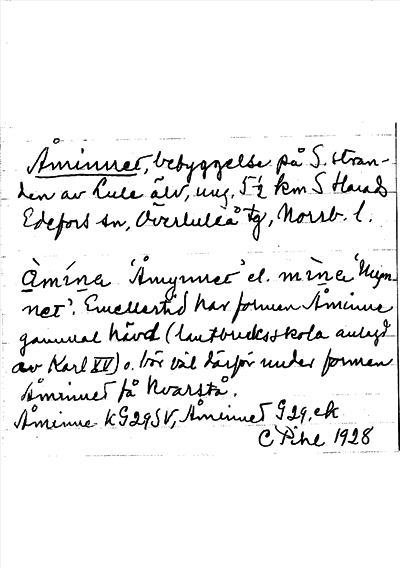 Åminnet, bebyggelse på S. stran-
den av Lule älv, ung. 5½ km S Harads
Edefors sn, Överluleå tg, Norrb. l.
Àmína 'Åmynnet' el. mìna 'Myn-
net'. Emellertid har formen Åminne
gammal hävd (lantbruksskola anlagd
av Karl XV) o. bör väl därför under formen
Åminnet få kvarstå.
Åminne KG29SV, Åminnet G29, ek
C Pihl 1928